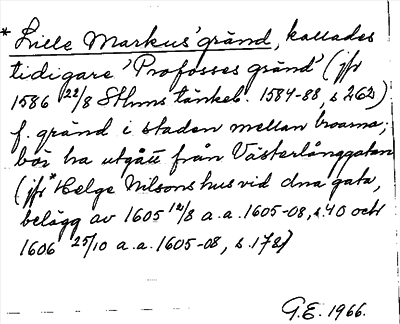 * Lille Markus' gränd, kallades
tidigare 'Profosses gränd' (jfr
1586 22/8 Sthms tänkeb. 1584-88, s. 262)
f. gränd i staden mellan broarna;
bör ha utgått från Västerlånggatan
(jfr *Helge Nilsons hus vid dna gata,
belägg av 1605 12/8 a.a. 1605-08, s. 40 och
1606 25/10 a.a. 1605-08, s. 178)
G.E. 1966.